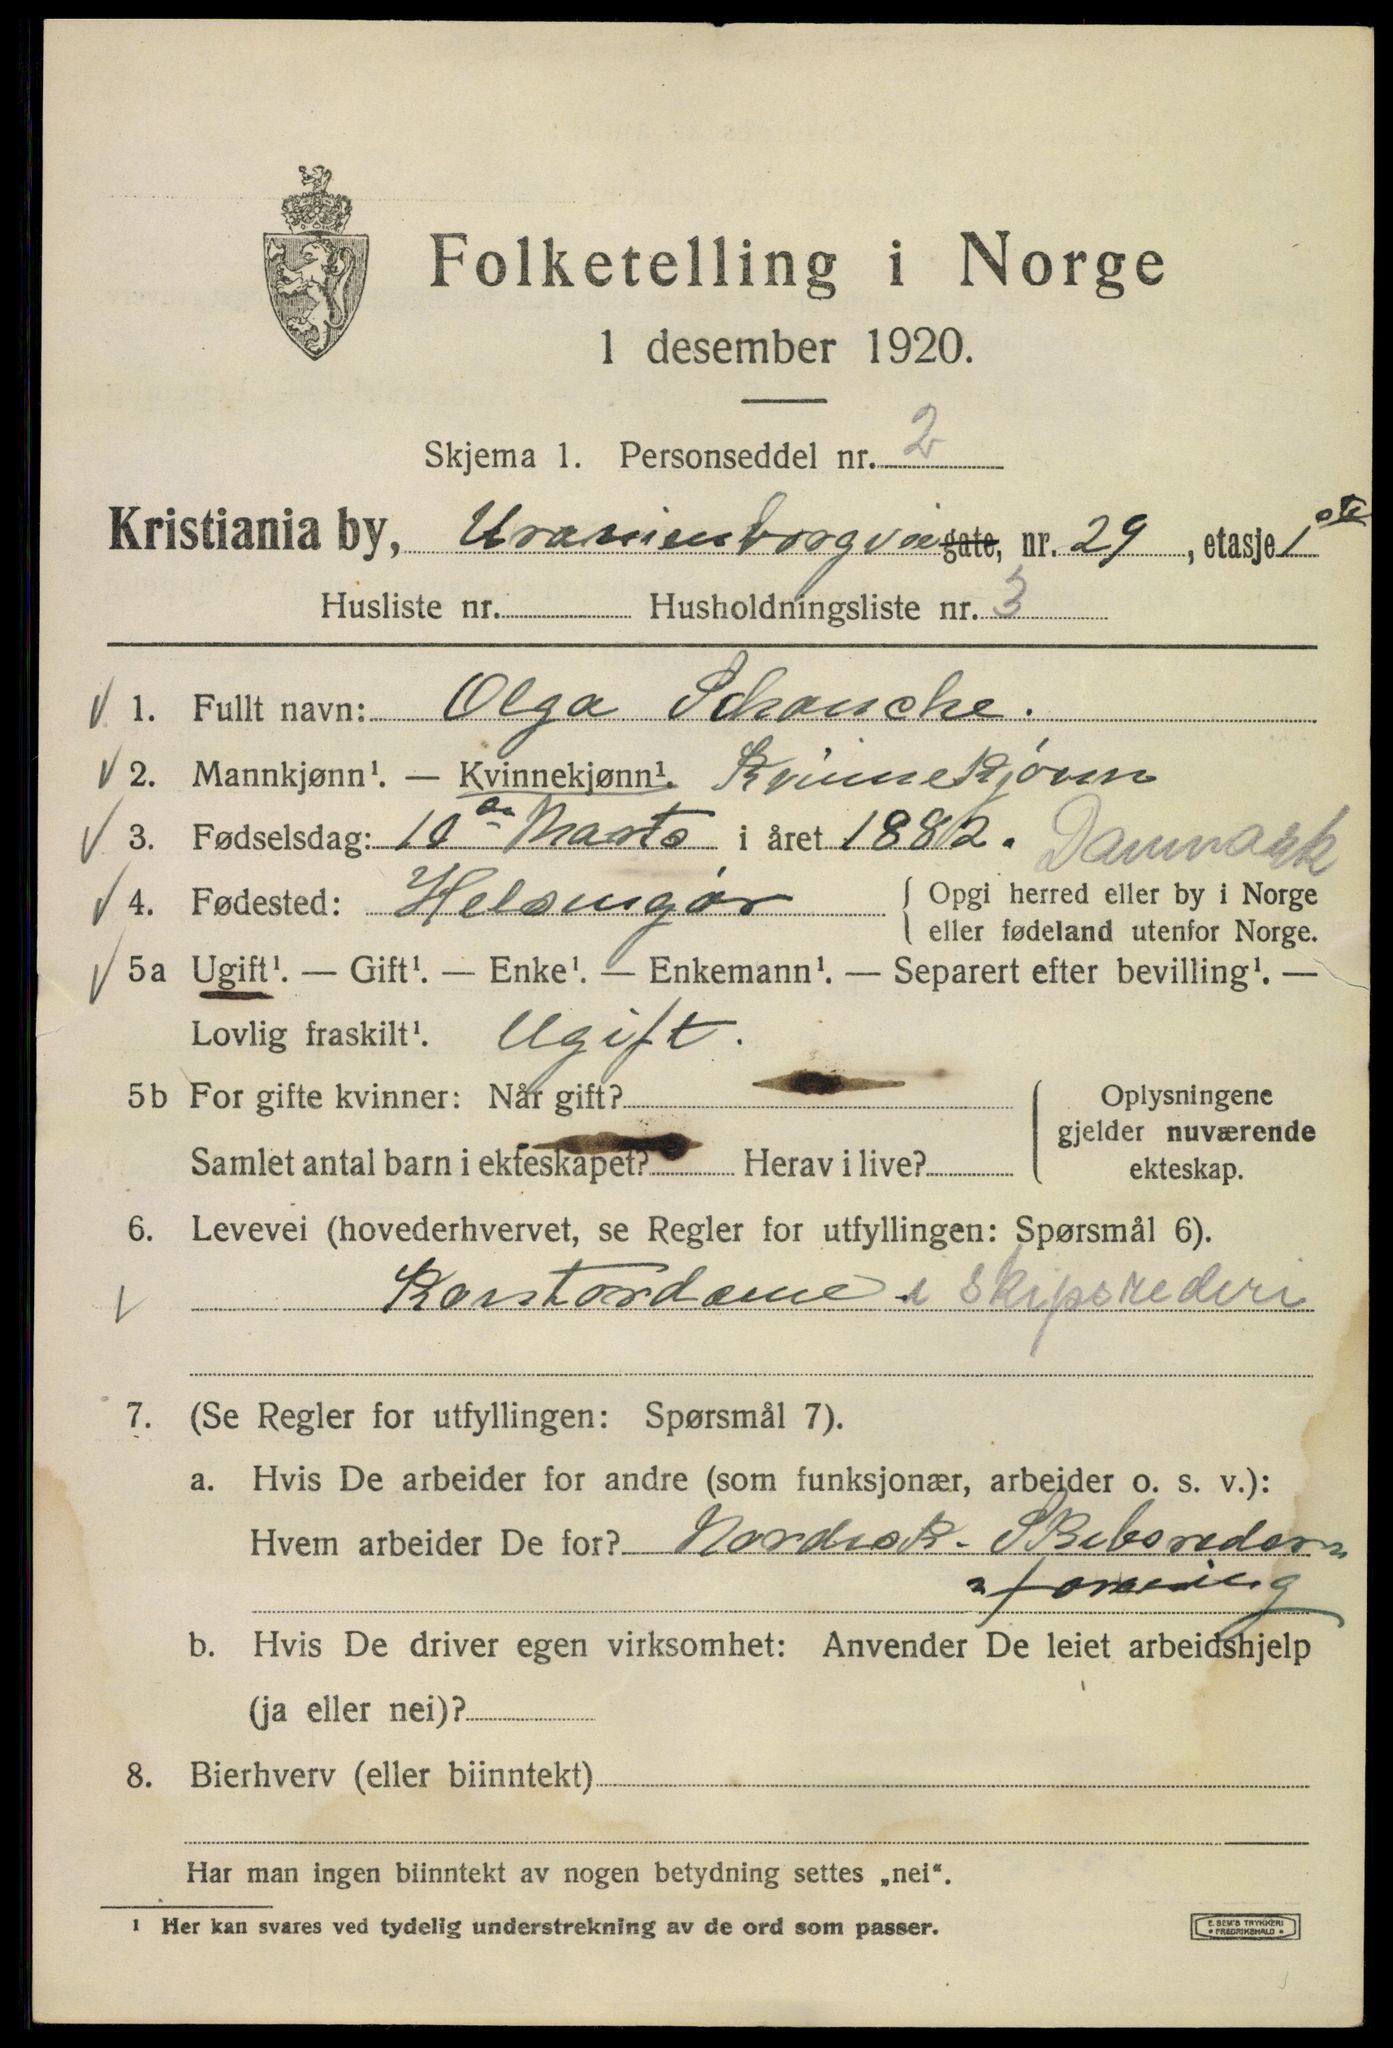 Folketelling i Norge
1 desember 1920.
Skjema 1. Personseddel nr. 2
Kristiania by, Uranienborgvei gate, nr. 29, etasje 1ste
Husliste nr. Husholdningsliste nr. 3
1. Fullt navn: Olga Schanche.
2. Mannkjønn¹. — Kvinnekjønn¹. Kvinnekjønn
3. Fødselsdag: 10de Marts i året 1882. Danmark
4. Fødested: Helsingør { Opgi herred eller by i Norge
eller fødeland utenfor Norge.
5a Ugift¹. — Gift¹. — Enke¹. — Enkemann¹. — Separert efter bevilling¹. —
Lovlig fraskilt¹. Ugift.
5b For gifte kvinner: Når gift? { Oplysningene
gjelder nuværende
Samlet antal barn i ekteskapet? Herav i live? ekteskap.
6. Levevei (hovederhvervet, se Regler for utfyllingen: Spørsmål 6).
Kontordame i skipsrederi
7. (Se Regler for utfyllingen: Spørsmål 7).
a. Hvis De arbeider for andre (som funksjonær, arbeider o. s. v.):
Hvem arbeider De for? Nordisk Skibsreder=
=forening
b. Hvis De driver egen virksomhet: Anvender De leiet arbeidshjelp
(ja eller nei)?
8. Bierhverv (eller biinntekt)
Har man ingen biinntekt av nogen betydning settes „nei“.
¹ Her kan svares ved tydelig understrekning av de ord som passer.
E. SEM'S TRYKKERI
* FREDRIKSHALD *